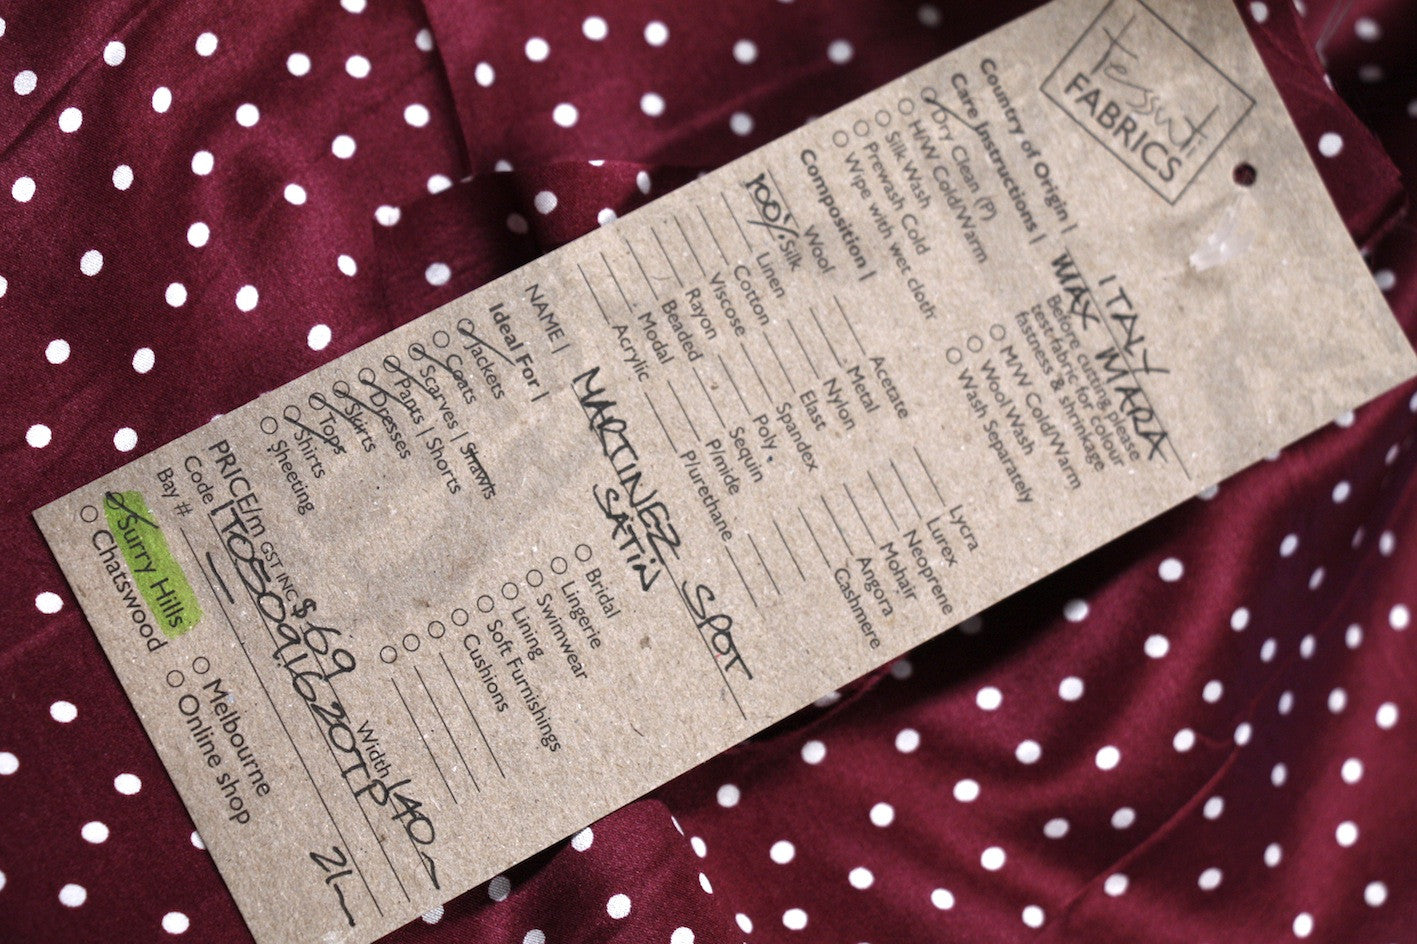 Tessuti
FABRICS
Country of Origin | ITALY
MAX MARA
Care Instructions | Before cutting please
test fabric for colour
fastness & shrinkage
Dry Clean (P)
H/W Cold/Warm
Silk Wash
Prewash Cold
Wipe with wet cloth
M/W Cold/Warm
Wool Wash
Wash Separately
Composition |
Wool
100% Silk
Linen
Cotton
Viscose
Rayon
Beaded
Modal
Acrylic
Acetate
Metal
Nylon
Elast
Spandex
Poly.
Sequin
P/mide
P/urethane
Lycra
Lurex
Neoprene
Mohair
Angora
Cashmere
NAME | MARTINEZ SPOT
SATIN
Ideal For |
Jackets
Coats
Scarves | Shawls
Pants | Shorts
Dresses
Skirts
Tops
Shirts
Sheeting
Bridal
Lingerie
Swimwear
Lining
Soft Furnishings
Cushions
PRICE/m GST INC $69 Width 140
Code
Bay #.
Surry Hills
Chatswood
Melbourne
Online shop